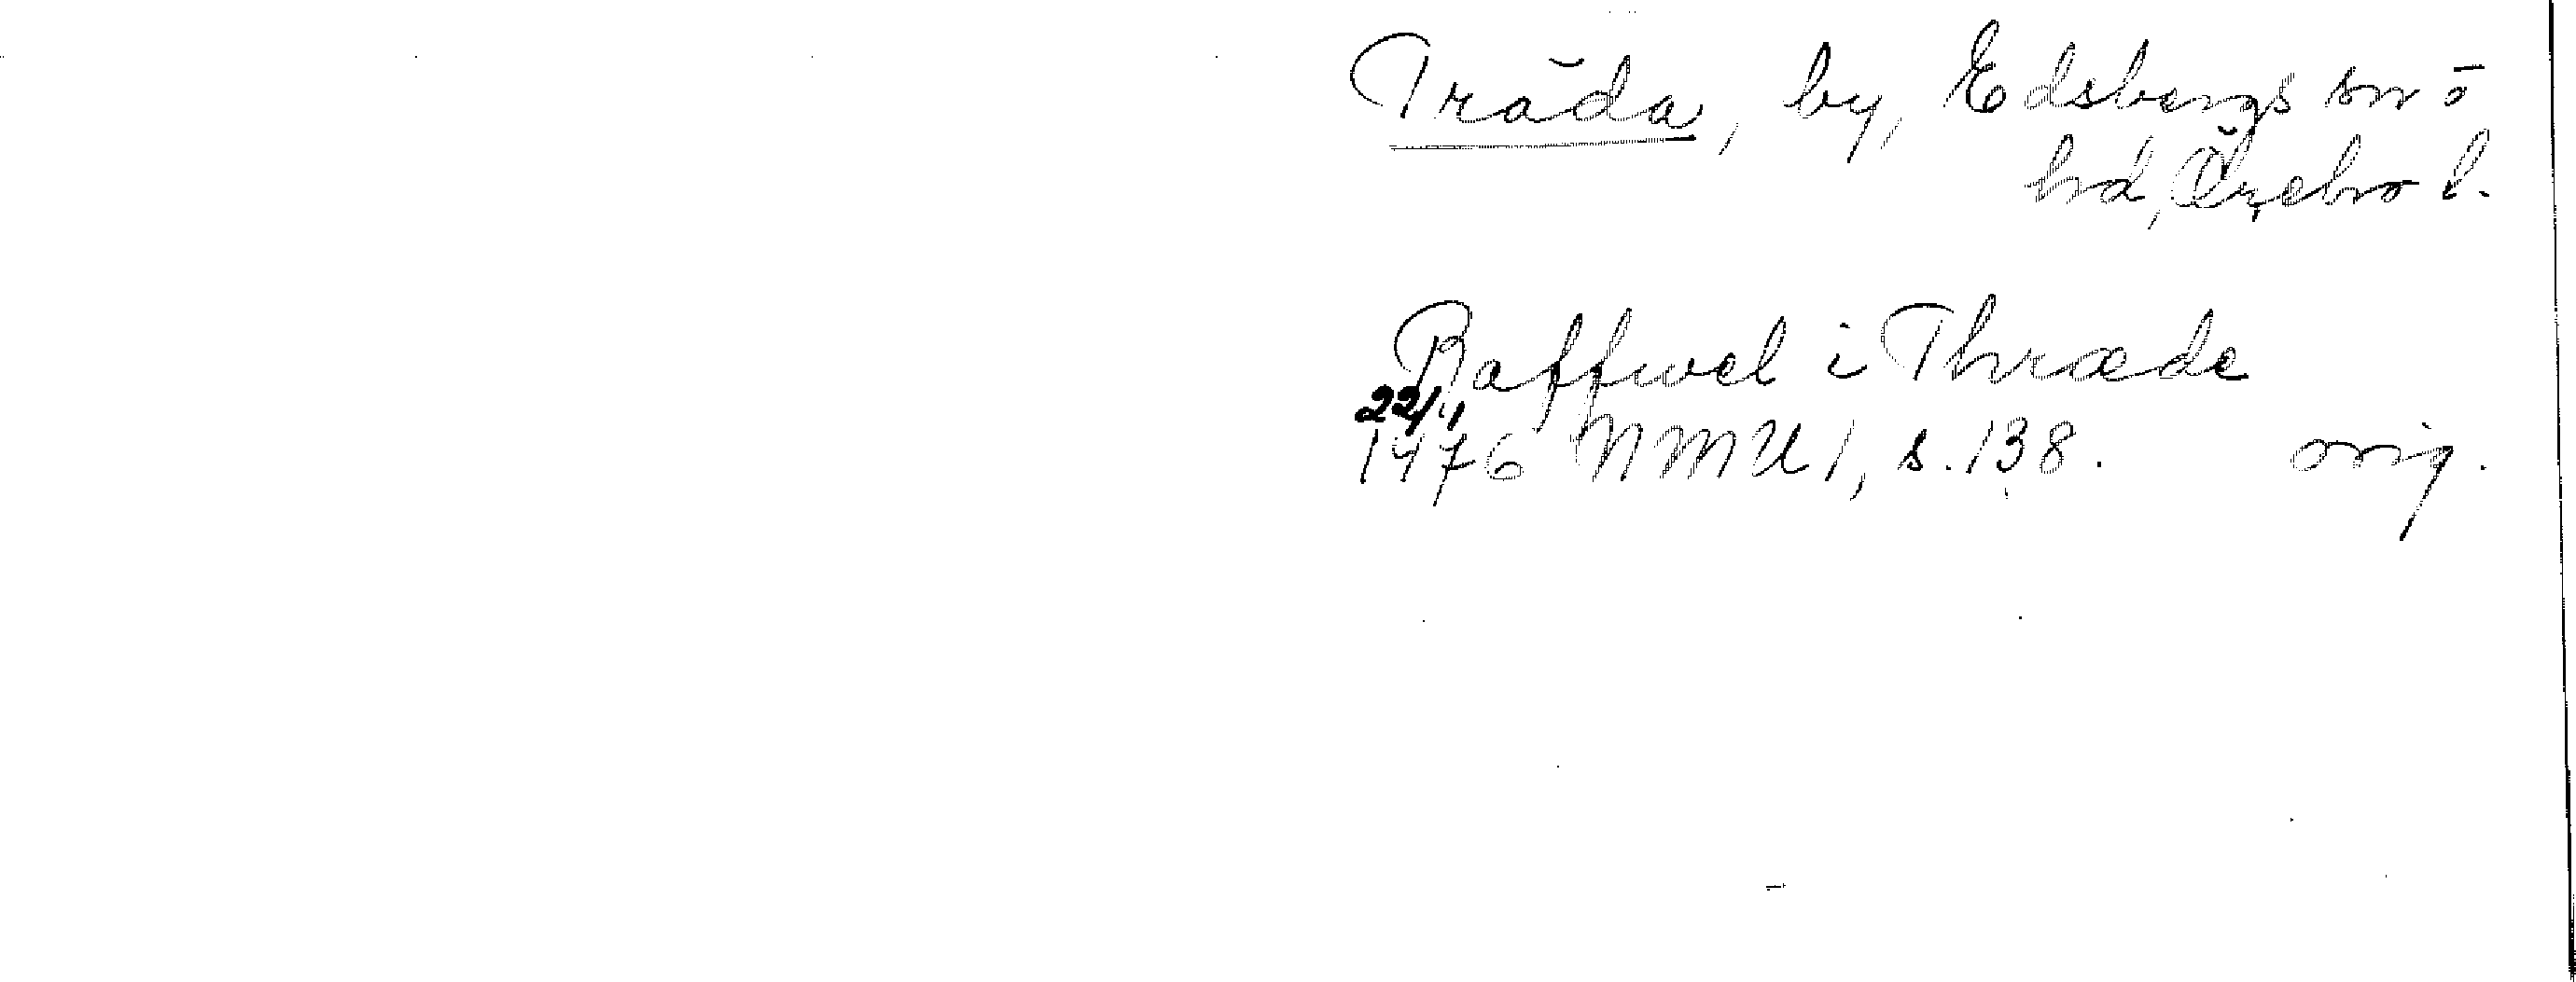 Träda, by, Edsbergs sn o
hd, Örebro l.
Raffwel i Thræde
22/4
1476 NMU 1, s. 138. orig.